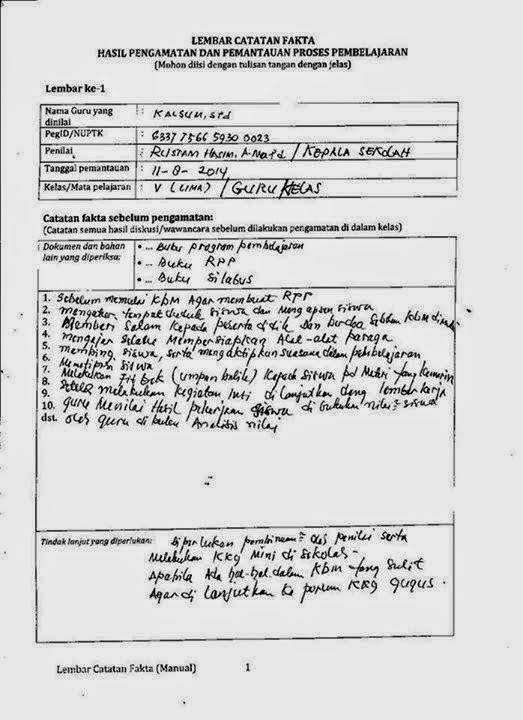 LEMBAR CATATAN FAKTA
HASIL PENGAMATAN DAN PEMANTAUAN PROSES PEMBELAJARAN
(Mohon diisi dengan tulisan tangan dengan jelas)
Lembar ke-1
Nama Guru yang dinilai : KALSUM, S.Pd
PegID/NUPTK : 6337 7566 5930 0023
Penilai : RUSTAM HASIM, A.Ma.Pd / KEPALA SEKOLAH
Tanggal pemantauan : 11-8-2014
Kelas/Mata pelajaran : V (LIMA) / GURU KELAS
Catatan fakta sebelum pengamatan:
(Catatan semua hasil diskusi/wawancara sebelum dilakukan pengamatan di dalam kelas)
Dokumen dan bahan lain yang diperiksa:
• ... Buku program pembelajaran
• ... Buku RPP
• ... Buku Silabus
1. Sebelum memulai KBM Agar membuat RPP
2. mengatur tempat duduk siswa dan Mengapsen siswa
3. Memberi salam kepada peserta didik Dan berdoa KBM
4. mengajar selalu Mempersiapkan Alat-alat peraga
5. siswa, serta mengaktipkan suasana dalam pembelajaran
6. siswa
7. Melakukan (umpan balik) kepada siswa Materi yang kemarin
8. melakukan kegiatan inti di lanjutkan lembar kerja
9.
10. guru Menilai Hasil pekerjaan siswa di bukukan nilai² siswa
dst. oleh guru Analisis nilai
Tindak lanjut yang diperlukan: diperlukan pembinaan² penilai serta
Melakukan KKG Mini di sekolah -
Apabila Ada hal-hal dalam KBM yang Sulit
Agar di lanjutkan ke porum KKG gugus.
Lembar Catatan Fakta (Manual) 1